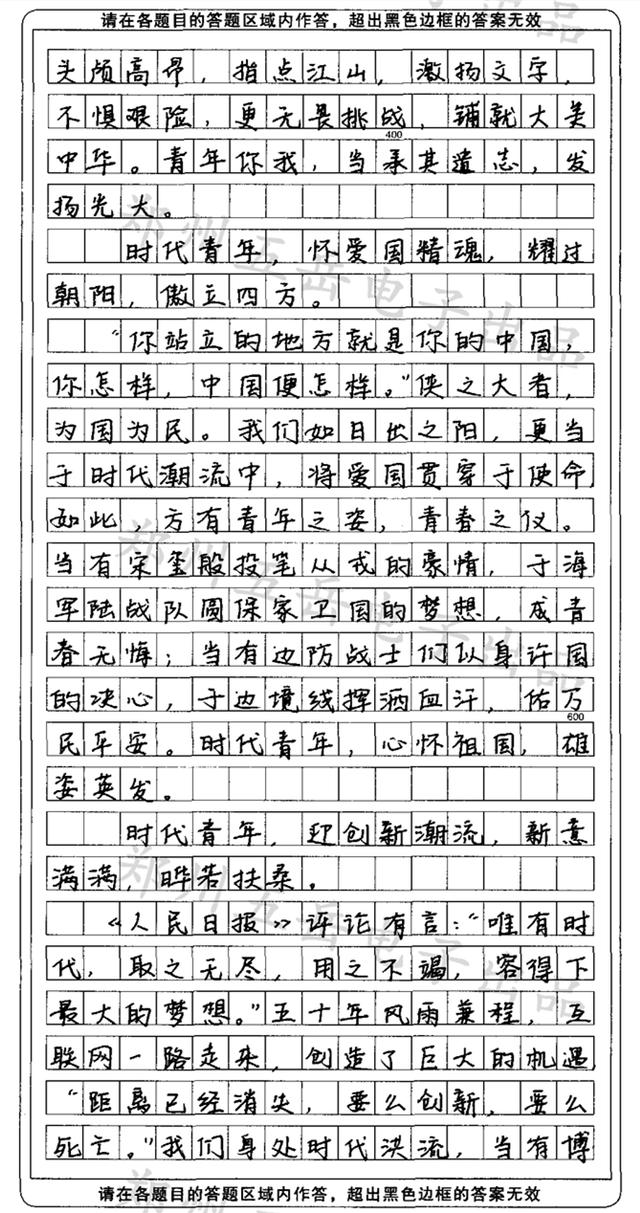 请在各题目的答题区域内作答，超出黑色边框的答案无效
头颅高昂，指点江山，激扬文字，
不惧艰险，更无畏挑战，铺就大美
400
中华。青年你我，当承其遗志，发
扬光大。
时代青年，怀爱国精魂，耀过
朝阳，傲立四方。
“你站立的地方就是你的中国，
你怎样，中国便怎样。”侠之大者，
为国为民。我们如日出之阳，更当
于时代潮流中，将爱国贯穿于使命
如此，方有青年之姿，青春之仪。
当有宋玺般投笔从戎的豪情，于海
军陆战队圆保家卫国的梦想，成青
春无悔；当有边防战士们以身许国
的决心，于边境线挥洒血汗，佑万
600
民平安。时代青年，心怀祖国，雄
姿英发。
时代青年，迎创新潮流，新意
满满，晔若扶桑。
《人民日报》评论有言：“唯有时
代，取之无尽，用之不竭，容得下
最大的梦想。”五十年风雨兼程，互
联网一路走来，创造了巨大的机遇
“距离已经消失，要么创新，要么
死亡。”我们身处时代洪流，当有博
请在各题目的答题区域内作答，超出黑色边框的答案无效
郑州五岳电子出品
郑州五岳电子出品
郑州五岳电子出品